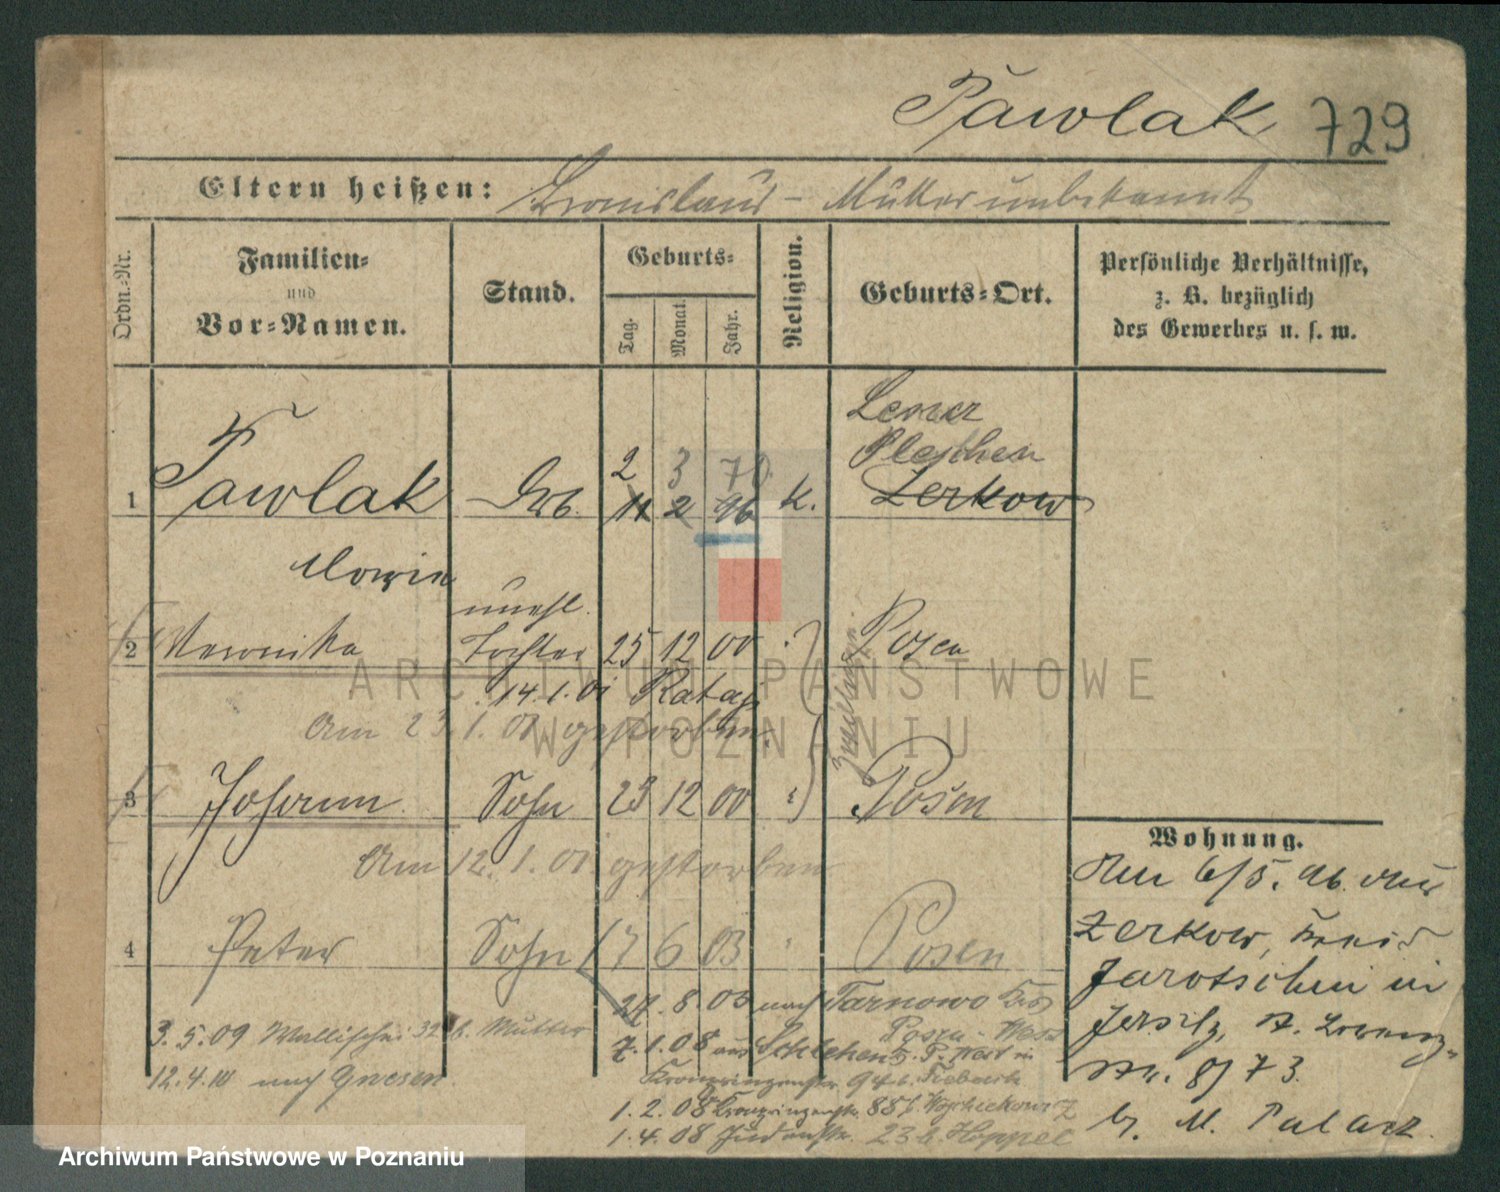 Pawlak 729
Eltern heißen: Bronislaus - Mutter unbekannt
Ordn.-Nr.
Familien-
und
Vor-Namen.
Stand.
Geburts-
Tag.
Monat.
Jahr.
Religion.
Geburts-Ort.
Persönliche Verhältnisse,
z. B. bezüglich
des Gewerbes u. s. w.
Pleschen
2 3 70
1 Pawlak Arb. 11 2 96 K. Zerkow
unehl.
2 Veronika Tochter 25 12 00 Posen
Zwillinge
14.1.01 Rataj
Am 23.1.01 gestorben.
3 Johann Sohn 23 12 00 Posen
Am 12.1.01 gestorben
4 Peter Sohn 17 6 03 Posen
24.8.03 nach Tarnowo
Posen - West
3.5.09 Wallischei 32 b. Mutter
7.1.08 aus
12.4.10 nach Gnesen
Kronprinzenstr. 94
1.2.08 Kronprinzenstr. 88
1.4.08 Judenstr. 23 b. Hoppel
Wohnung.
Am 6/5. 96 aus
Zerkow, Kreis
Jarotschin in
Jersitz, St. Lorenz-
str. 8/73.
b. M.
ARCHIWUM PAŃSTWOWE
W POZNANIU
Archiwum Państwowe w Poznaniu